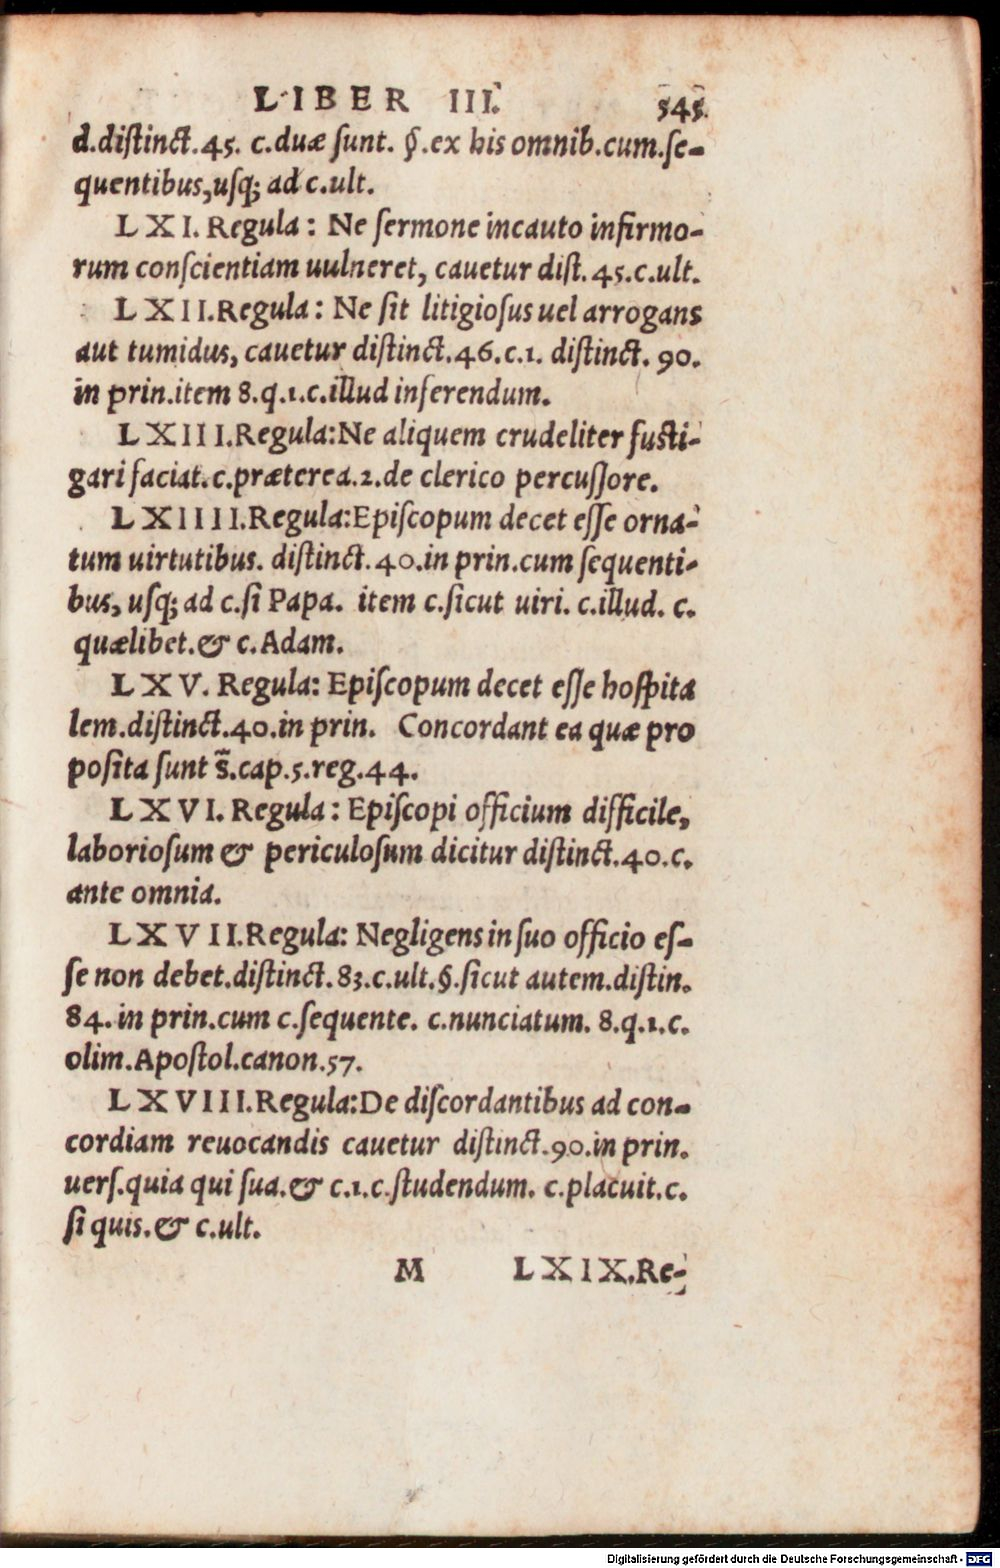 LIBER III. 545.
d.distinct.45. c.duæ ſunt. §.ex his omnib.cum.ſe-
quentibus,uſq; ad c.ult.
LXI. Regula: Ne ſermone incauto infirmo-
rum conſcientiam uulneret, cauetur diſt.45.c.ult.
LXII.Regula: Ne ſit litigioſus uel arrogans
aut tumidus, cauetur diſtinct.46.c.1. diſtinct. 90.
in prin.item 8.q.1.c.illud inſerendum.
LXIII.Regula:Ne aliquem crudeliter fuſti-
gari faciat.c.præterea.2.de clerico percuſſore.
LXIIII.Regula:Epiſcopum decet eſſe orna-
tum uirtutibus. diſtinct.40.in prin.cum ſequenti-
bus, uſq; ad c.ſi Papa. item c.ſicut uiri. c.illud. c.
quælibet.& c.Adam.
LXV. Regula: Epiſcopum decet eſſe hoſpita
lem.diſtinct.40.in prin. Concordant ea quæ pro
poſita ſunt s̄.cap.5.reg.44.
LXVI. Regula: Epiſcopi officium difficile,
laborioſum & periculoſum dicitur diſtinct.40.c.
ante omnia.
LXVII.Regula: Negligens in ſuo officio eſ-
ſe non debet.diſtinct.83.c.ult.§.ſicut autem.diſtin.
84.in prin.cum c.ſequente. c.nunciatum. 8.q.1.c.
olim.Apoſtol.canon.57.
LXVIII.Regula:De diſcordantibus ad con-
cordiam reuocandis cauetur diſtinct.90.in prin.
uerſ.quia qui ſua.& c.1.c.ſtudendum. c.placuit.c.
ſi quis.& c.ult.
M LXIX.Re-
Digitalisierung gefördert durch die Deutsche Forschungsgemeinschaft - DFG